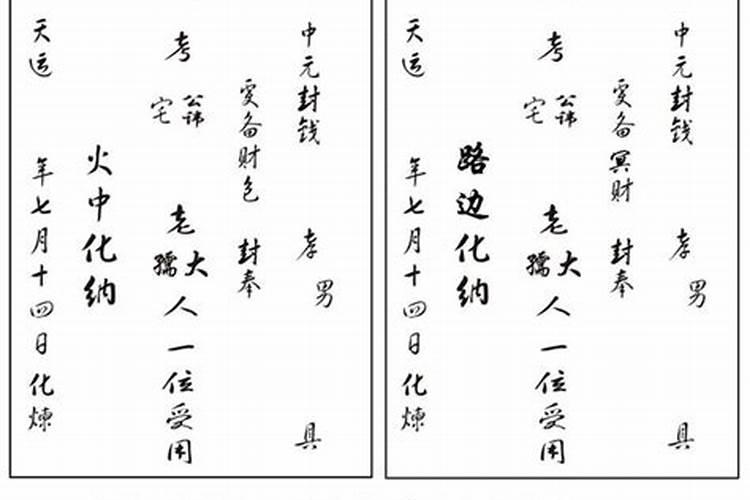 中元封钱 孝男 具
爰备财包 封奉
考 公讳宅 老大孺人一位受用
火中化纳
天运 年七月十四日化煉
中元封钱 孝男 具
爰备冥财 封奉
考 公讳宅 老大孺人一位受用
路边化纳
天运 年七月十四日化煉